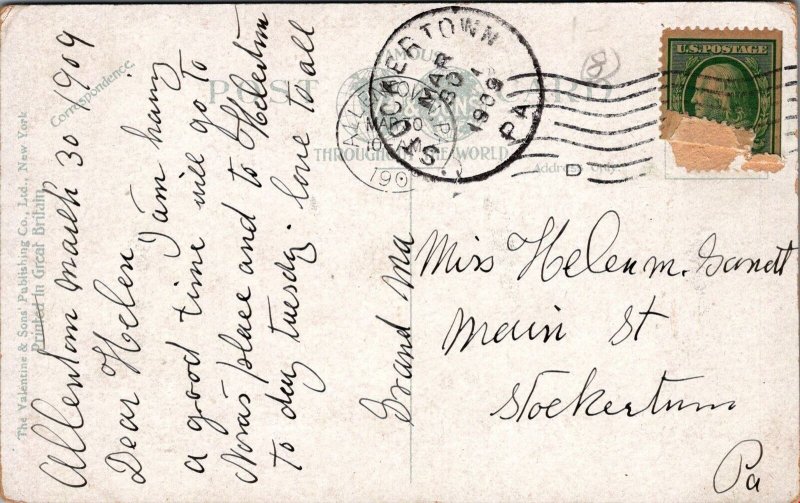 The Valentine & Sons' Publishing Co., Ltd., New York
Printed in Great Britain
Correspondence.
POST CARD
FAMOUS
THROUGHOUT THE WORLD
Address only.
STOCKERTOWN
MAR
30
1909
PA.
MAR 30
190
U.S. POSTAGE
8
Allentown March 30 1909
Dear Helen
I am haveing
a good time will go to
Noras place and to Helertown
to day tuesday. love to all
Grand Ma
Miss Helen M.
Main St
Stockertown
Pa